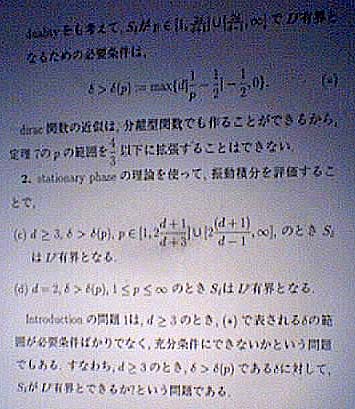 dualityをも考えて, S_δがp∈[1, ]∪[ ,∞]でL^p有界と
なるための必要条件は,
δ > δ(p) := max{d|1/p − 1/2| − 1/2, 0}. (*)
dirac 関数の近似は, 分離型関数でも作ることができるから,
定理 7のpの範囲を1/3以下に拡張することはできない.
2. stationary phase の理論を使って, 振動積分を評価するこ
とで,
(c) d ≥ 3, δ > δ(p), p ∈ [1, 2(d+1)/(d+3)] ∪ [2(d+1)/(d−1), ∞], のとき S_δ
は L^p有界となる.
(d) d = 2, δ > δ(p), 1 ≤ p ≤ ∞ のとき S_δは L^p有界となる.
Introduction の問題 1は, d ≥ 3のとき, (*) で表されるδの範
囲が必要条件ばかりでなく, 充分条件にできないかという問題
でもある. すなわち, d ≥ 3のとき, δ > δ(p) であるδに対して,
S_δが L^p有界とできるか?という問題である.